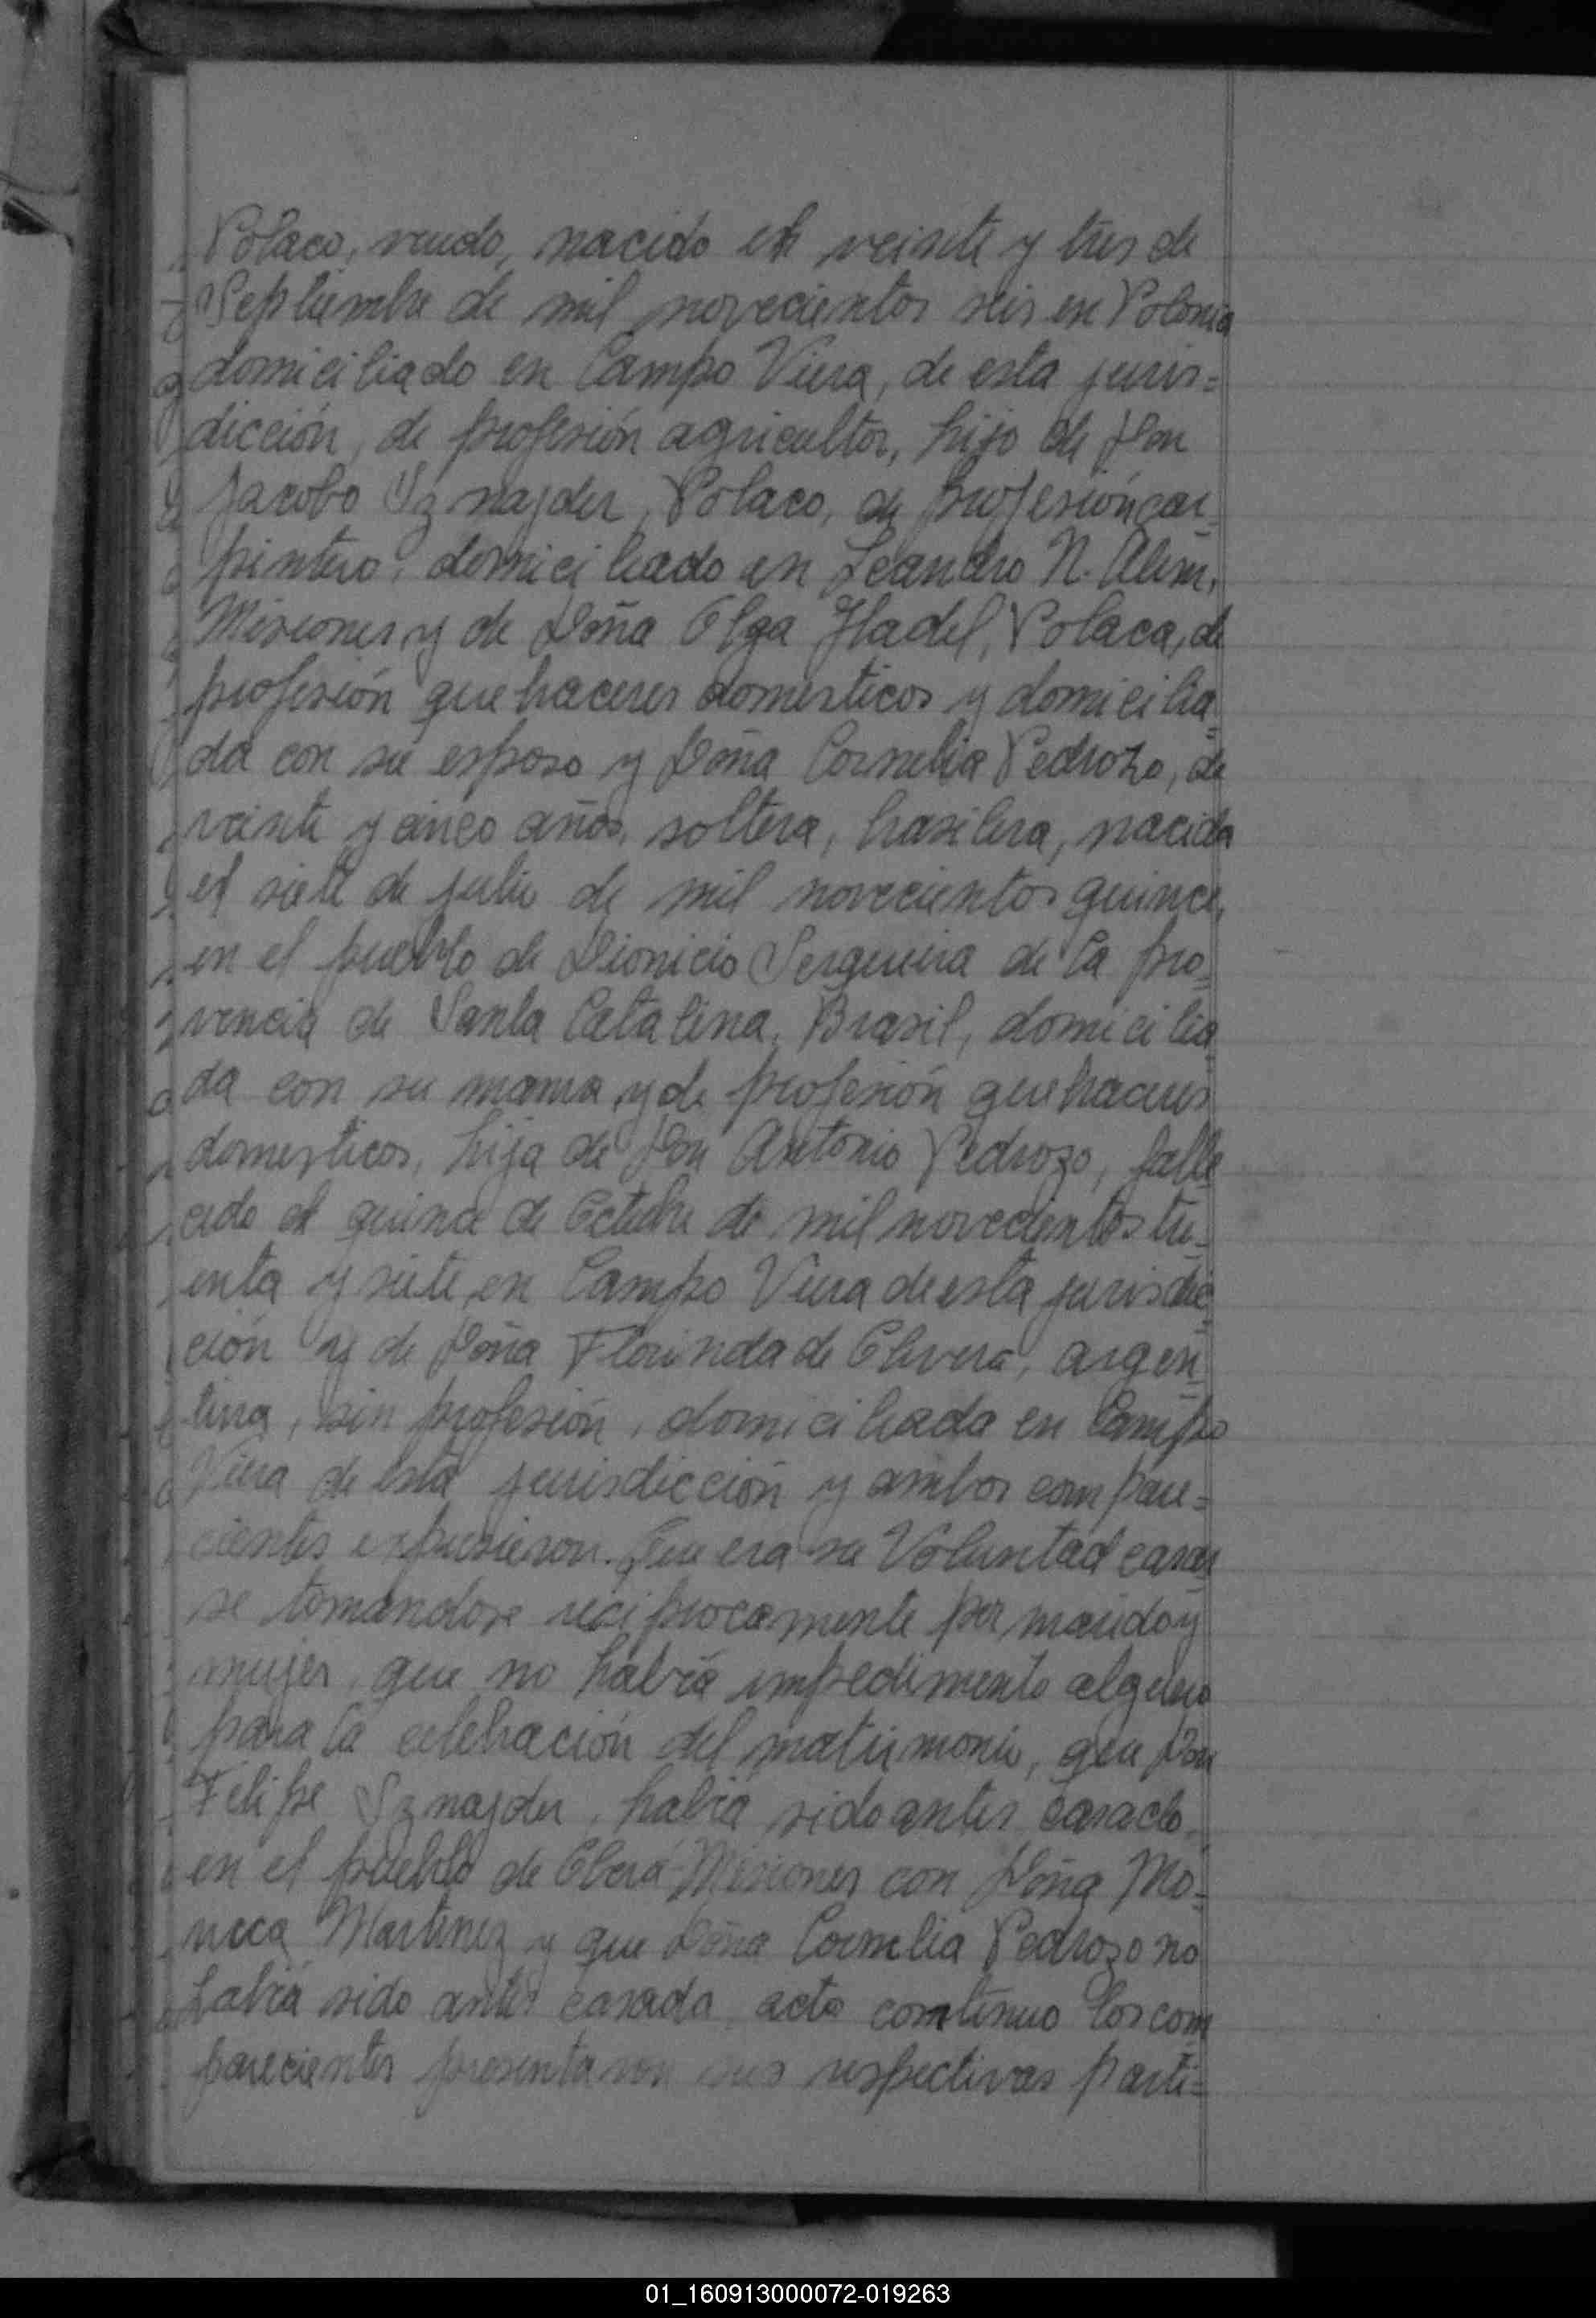 Polaco, viudo, nacido el veinte y tres de
Septiembre de mil novecientos seis en Polonia
domiciliado en Campo Viera, de esta juris=
dicción, de profesión agricultor, hijo de Don
Jacobo Sznajder, Polaco, de profesión car=
pintero, domiciliado en Leandro N. Alem,
Misiones, y de Doña Olga Hadel, Polaca, de
profesión quehaceres domesticos y domicilia=
da con su esposo y Doña Cornelia Pedrozo, de
veinte y cinco años, soltera, brasilera, nacida
el siete de julio de mil novecientos quince,
en el pueblo de Dionicio Sergueira de la pro=
vencia de Santa Catalina, Brasil, domicilia
da con su mama y de profesión quehaceres
domesticos, hija de Don Antonio Pedrozo, falle
cido el quince de Octubre de mil novecientos tre=
inta y siete, en Campo Viera de esta jurisdic
ción y de Doña Florinda de Olivera, argen=
tina, sin profesión, domiciliada en Campo
Viera de esta jurisdicción y ambos compare=
cientes expusieron. Que era su Voluntad casar
se tomandose reciprocamente por marido y
mujer, que no habia impedimento alguno
para la celebración del matrimonio, que Don
Felipe Sznajder, habia sido antes casado
en el pueblo de Oberá-Misiones con Doña Mo=
nica Martinez y que Doña Cornelia Pedrozo no
habia sido antes casada, acto continuo los com
parecientes presentaron sus respectivas parti=
01_160913000072-019263